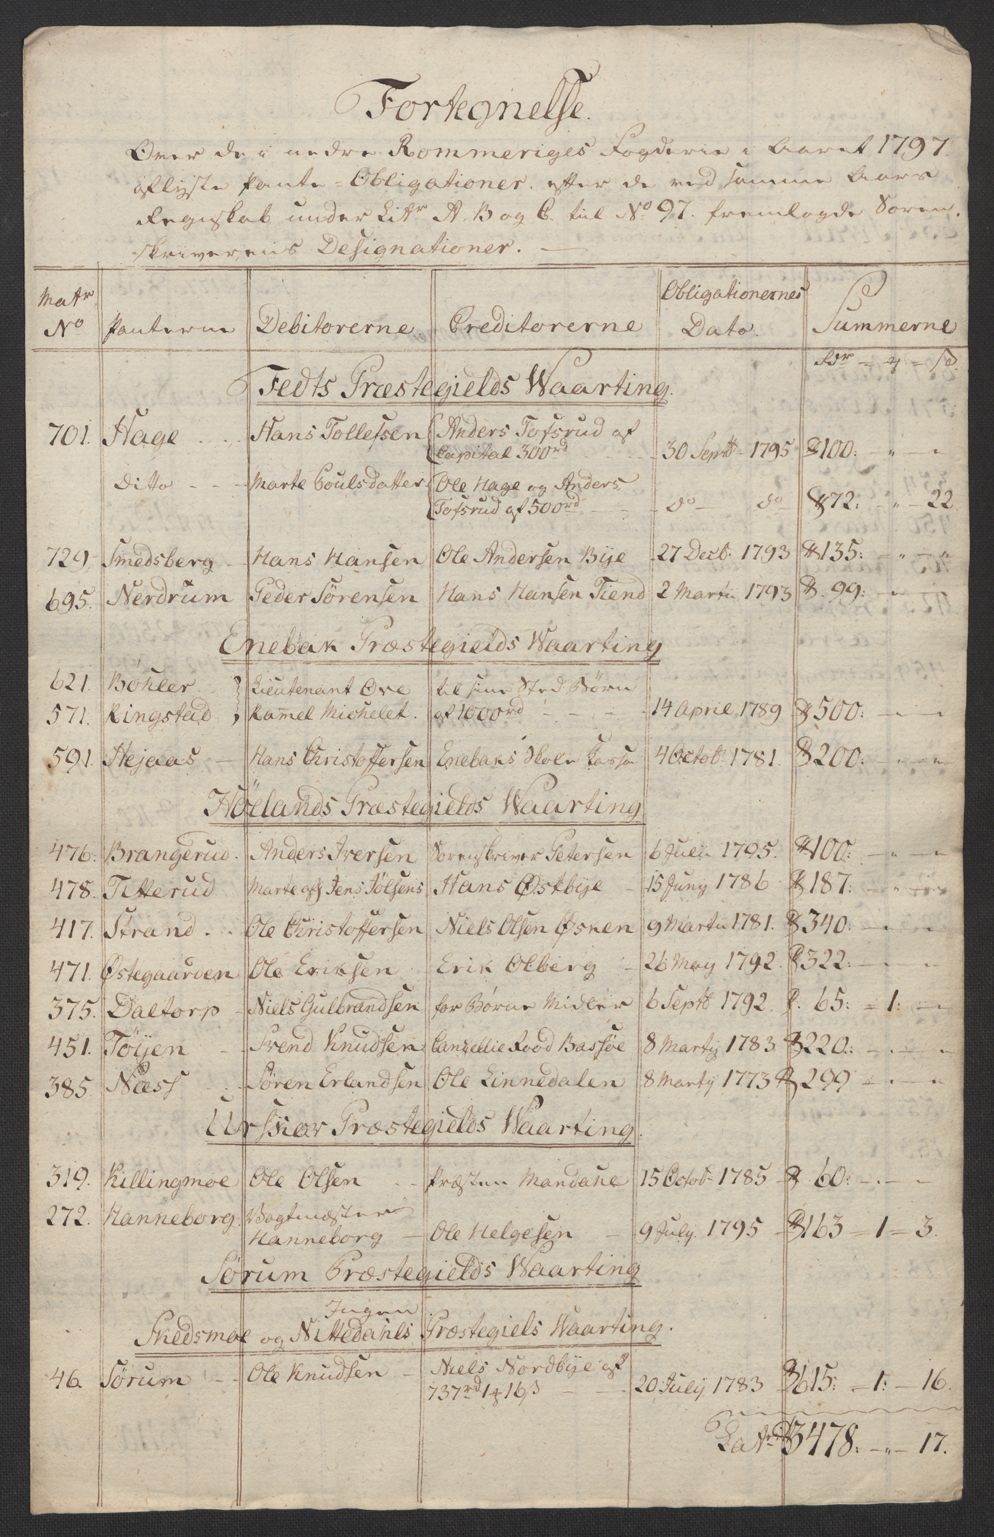 Fortegnelse.
Over de i nedre Rommeriges Fogderie i Aaret 1797
aflyste Pante-Obligationer. efter de ved samme Aars
Regnskab under Litr A. B og C. til No 97. fremlagde Soren-
skriverens Designationer.
Matr No Panterne Debitorerne Creditorerne Obligationernes Dato. Summerne
Rdr - 4 - s
Fedts Præstegields Waarting.
701. Hage Hans Tollefsen Anders Tofsrud af Capital 300rd 30 Septb 1795 100: - " - "
Dito Marte Poulsdatter Ole Hage og Anders Tofsrud af 500rd do do 72: - " - 22
729. Smedsberg Hans Hansen Ole Andersen Bije 27 Decb. 1793 135: - " - "
695. Nerdrum Peder Sørensen Hans Hansen Tiend 2 Martii 1793 99: - " - "
Enebak Præstegields Waarting
621. Bøhler } Lieutenant Ove til sine Sted Børn
571. Ringstad } Ramel Michelet. af 1000rd 14 April 1789 500: - " - "
591. Hejaas Hans Christoffersen Enebaks Skole Cassa 4 Octob: 1781. 200: - " - "
Høelands Præstegields Waarting
476. Brangerud. Anders Iversen Sorenskriver Petersen 6 Julii 1795. 100: - " - "
478. Titterud Marte afg Jens Jølsens Hans Østbije 15 Juny 1786 187: - " - "
417. Strand Ole Christoffersen Niels Olsen Øsnen 9 Martii 1781. 340: - " - "
471. Østegaarden Ole Eriksen Erik Olberg 26 May 1792. 322: - " - "
375. Daltorp Niels Gulbrandsen for Børne Midler 6 Septb 1792. 65: - 1: - "
451. Tøijen Trend Knudsen Cancellie Raad Bassøe 8 Martij 1783 220: - " - "
385. Næss Søren Erlandsen Ole Linnedalen 8 Martij 1773 299 - " - "
Urskoer Præstegields Waarting.
319. Killingmoe Ole Olsen Præsten Mandahe 15 Octob. 1785 60: - " - "
272. Hanneborg Vagtmæster Hanneborg Ole Helgesen 9 July. 1795 163 - 1 - 3.
Sørum Præstegields Waarting
Ingen
Skedsmoe og Nittedahls Præstegiels Waarting.
46. Sørum Ole Knudsen Niels Nordbije af 737rd 1 4 16 s 20 July 1783 615: - 1: - 16.
Latr 3478: - " - 17.